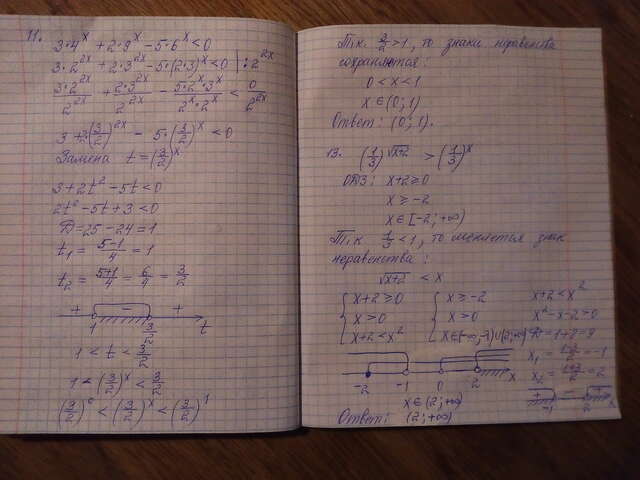 11. 3·4^x + 2·9^x − 5·6^x < 0
3·2^2x + 2·3^2x − 5·(2·3)^x < 0 | : 2^2x
3·2^2x/2^2x + 2·3^2x/2^2x − 5·2^x·3^x/2^x·2^x < 0/2^2x
3 + 2(3/2)^2x − 5·(3/2)^x < 0
Замена t = (3/2)^x
3 + 2t² − 5t < 0
2t² − 5t + 3 < 0
D = 25 − 24 = 1
t₁ = 5−1/4 = 1
t₂ = 5+1/4 = 6/4 = 3/2
+ − +
1 3/2 t
1 < t < 3/2
1 < (3/2)^x < 3/2
(3/2)^0 < (3/2)^x < (3/2)^1
Т.к. 3/2 > 1, то знаки неравенства
сохраняется:
0 < x < 1
x ∈ (0; 1)
Ответ: (0; 1).
13. (1/3)^√x+2 > (1/3)^x
ОДЗ: x+2 ≥ 0
x ≥ −2
x ∈ [−2; +∞)
Т.к 1/3 < 1, то меняется знак
неравенства:
√x+2 < x
{ x+2 ≥ 0 { x ≥ −2 x+2 < x²
x > 0 x > 0 x² − x − 2 > 0
x+2 < x² x ∈ (−∞; −1)∪(2; +∞) D = 1+8 = 9
x₁ = 1−3/2 = −1
x₂ = 1+3/2 = 2
−2 −1 0 2 x
+ − +
−1 2 x
x ∈ (2; +∞)
Ответ: (2; +∞)